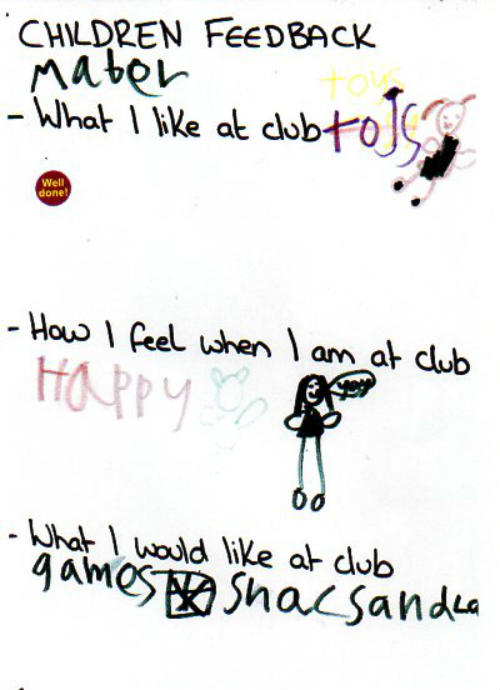 CHILDREN FEEDBACK
Mater
toys
- What I like at club tojs
Well done!
- How I feel when I am at club
Happy
yay
- What I would like at club
games snacsand